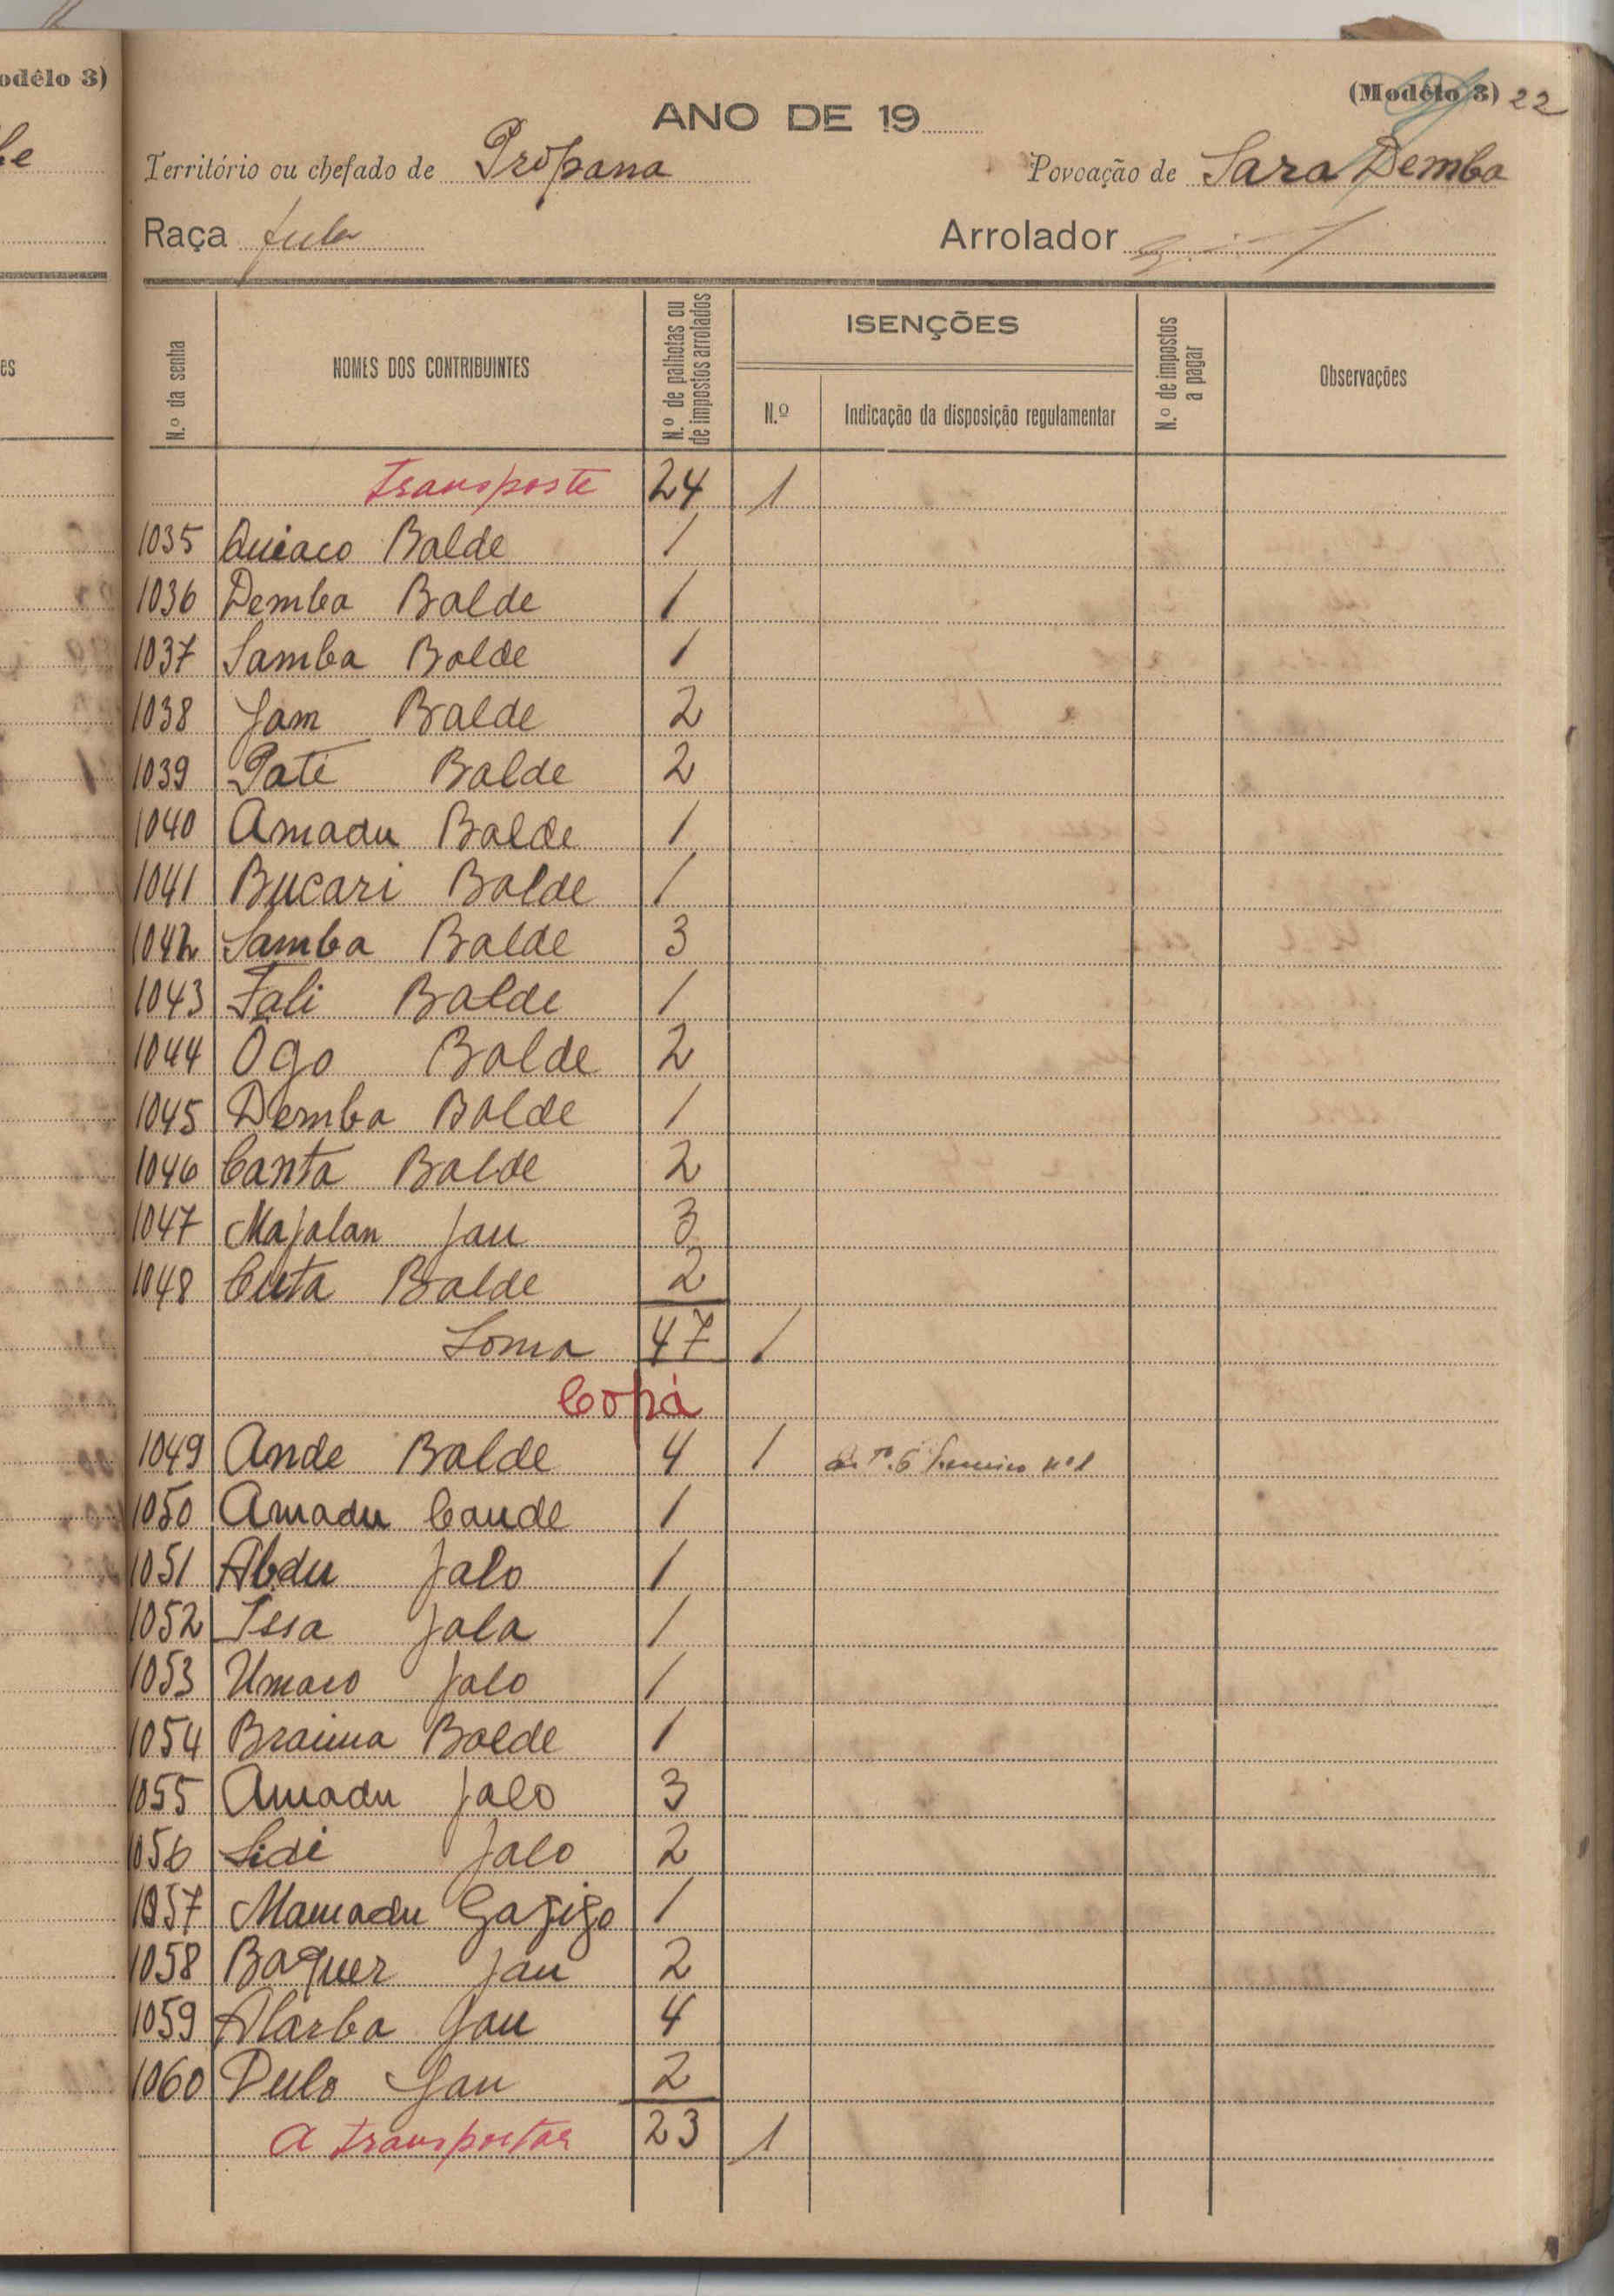 odélo 3)
es
(Modélo 3) 22
ANO DE 19
Território ou chefado de Propana Povoação de Sara Demba
Raça fula Arrolador
N.º da senha
NOMES DOS CONTRIBUINTES
N.º de palhotas ou de impostos arrolados
ISENÇÕES
N.º Indicação da disposição regulamentar
N.º de impostos a pagar
Observações
Transporte 24 1
1035 Quiaco Balde 1
1036 Demba Balde 1
1037 Samba Balde 1
1038 Jam Balde 2
1039 Paté Balde 2
1040 Amadu Balde 1
1041 Bucari Balde 1
1042 Samba Balde 3
1043 Fali Balde 1
1044 Ogo Balde 2
1045 Demba Balde 1
1046 Canta Balde 2
1047 Majalan Jau 3
1048 Cuta Balde 2
Soma 47 1
Copá
1049 Ande Balde 4 1 nº 1
1050 Amadu Cande 1
1051 Abdu Jalo 1
1052 Issa Jala 1
1053 Umaro Jalo 1
1054 Braima Balde 1
1055 Amadu Jalo 3
1056 Sidi Jalo 2
1057 Mamadu Gagigo 1
1058 Baquer Jau 2
1059 Alarba Jau 4
1060 Dulo Jau 2
A transportar 23 1